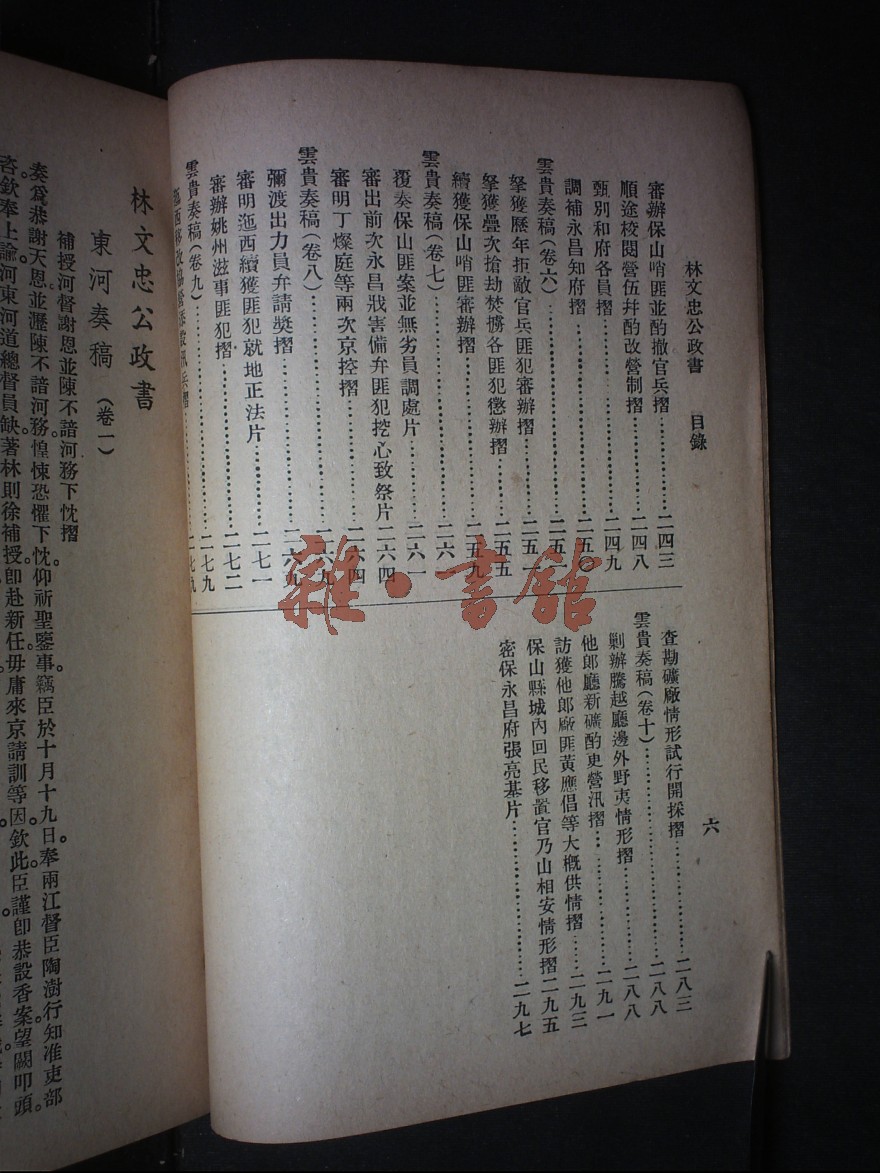 林文忠公政書 目錄 六
審辦保山哨匪並酌撤官兵摺 二四三
順途校閱營伍幷酌改營制摺 二四八
甄別和府各員摺 二四九
調補永昌知府摺 二五〇
雲貴奏稿(卷六) 二五一
拏獲歷年拒敵官兵匪犯審辦摺 二五一
拏獲疊次搶劫焚擄各匪犯懲辦摺 二五五
續獲保山哨匪審辦摺 二五九
雲貴奏稿(卷七) 二六一
覆奏保山匪案並無劣員調處片 二六一
審出前次永昌戕害備弁匪犯挖心致祭片 二六四
審明丁燦庭等兩次京控摺 二六四
雲貴奏稿(卷八) 二六九
彌渡出力員弁請獎摺 二六九
審明迤西續獲匪犯就地正法片 二七一
審辦姚州滋事匪犯摺 二七二
雲貴奏稿(卷九) 二七九
迤西移改協營添設汛兵摺 二七九
查勘礦廠情形試行開採摺 二八三
雲貴奏稿(卷十) 二八八
剿辦騰越廳邊外野夷情形摺 二八八
他郎廳新礦酌更營汛摺 二九一
訪獲他郎廠匪黃應倡等大槪供情摺 二九三
保山縣城內回民移置官乃山相安情形摺 二九五
密保永昌府張亮基片 二九七
林文忠公政書
東河奏稿 (卷一)
補授河督謝恩並陳不諳河務下忱摺
奏爲恭謝天恩。並瀝陳不諳河務。惶悚恐懼下忱。仰祈聖鑒事。竊臣於十月十九日。奉兩江督臣陶澍行知。准吏部
咨。欽奉上諭。河東河道總督員缺。著林則徐補授。卽赴新任。毋庸來京請訓等因。欽此。臣謹卽恭設香案。望闕叩頭。
雜·書館